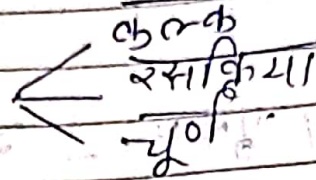 कल्क
रसक्रिया
चूर्ण